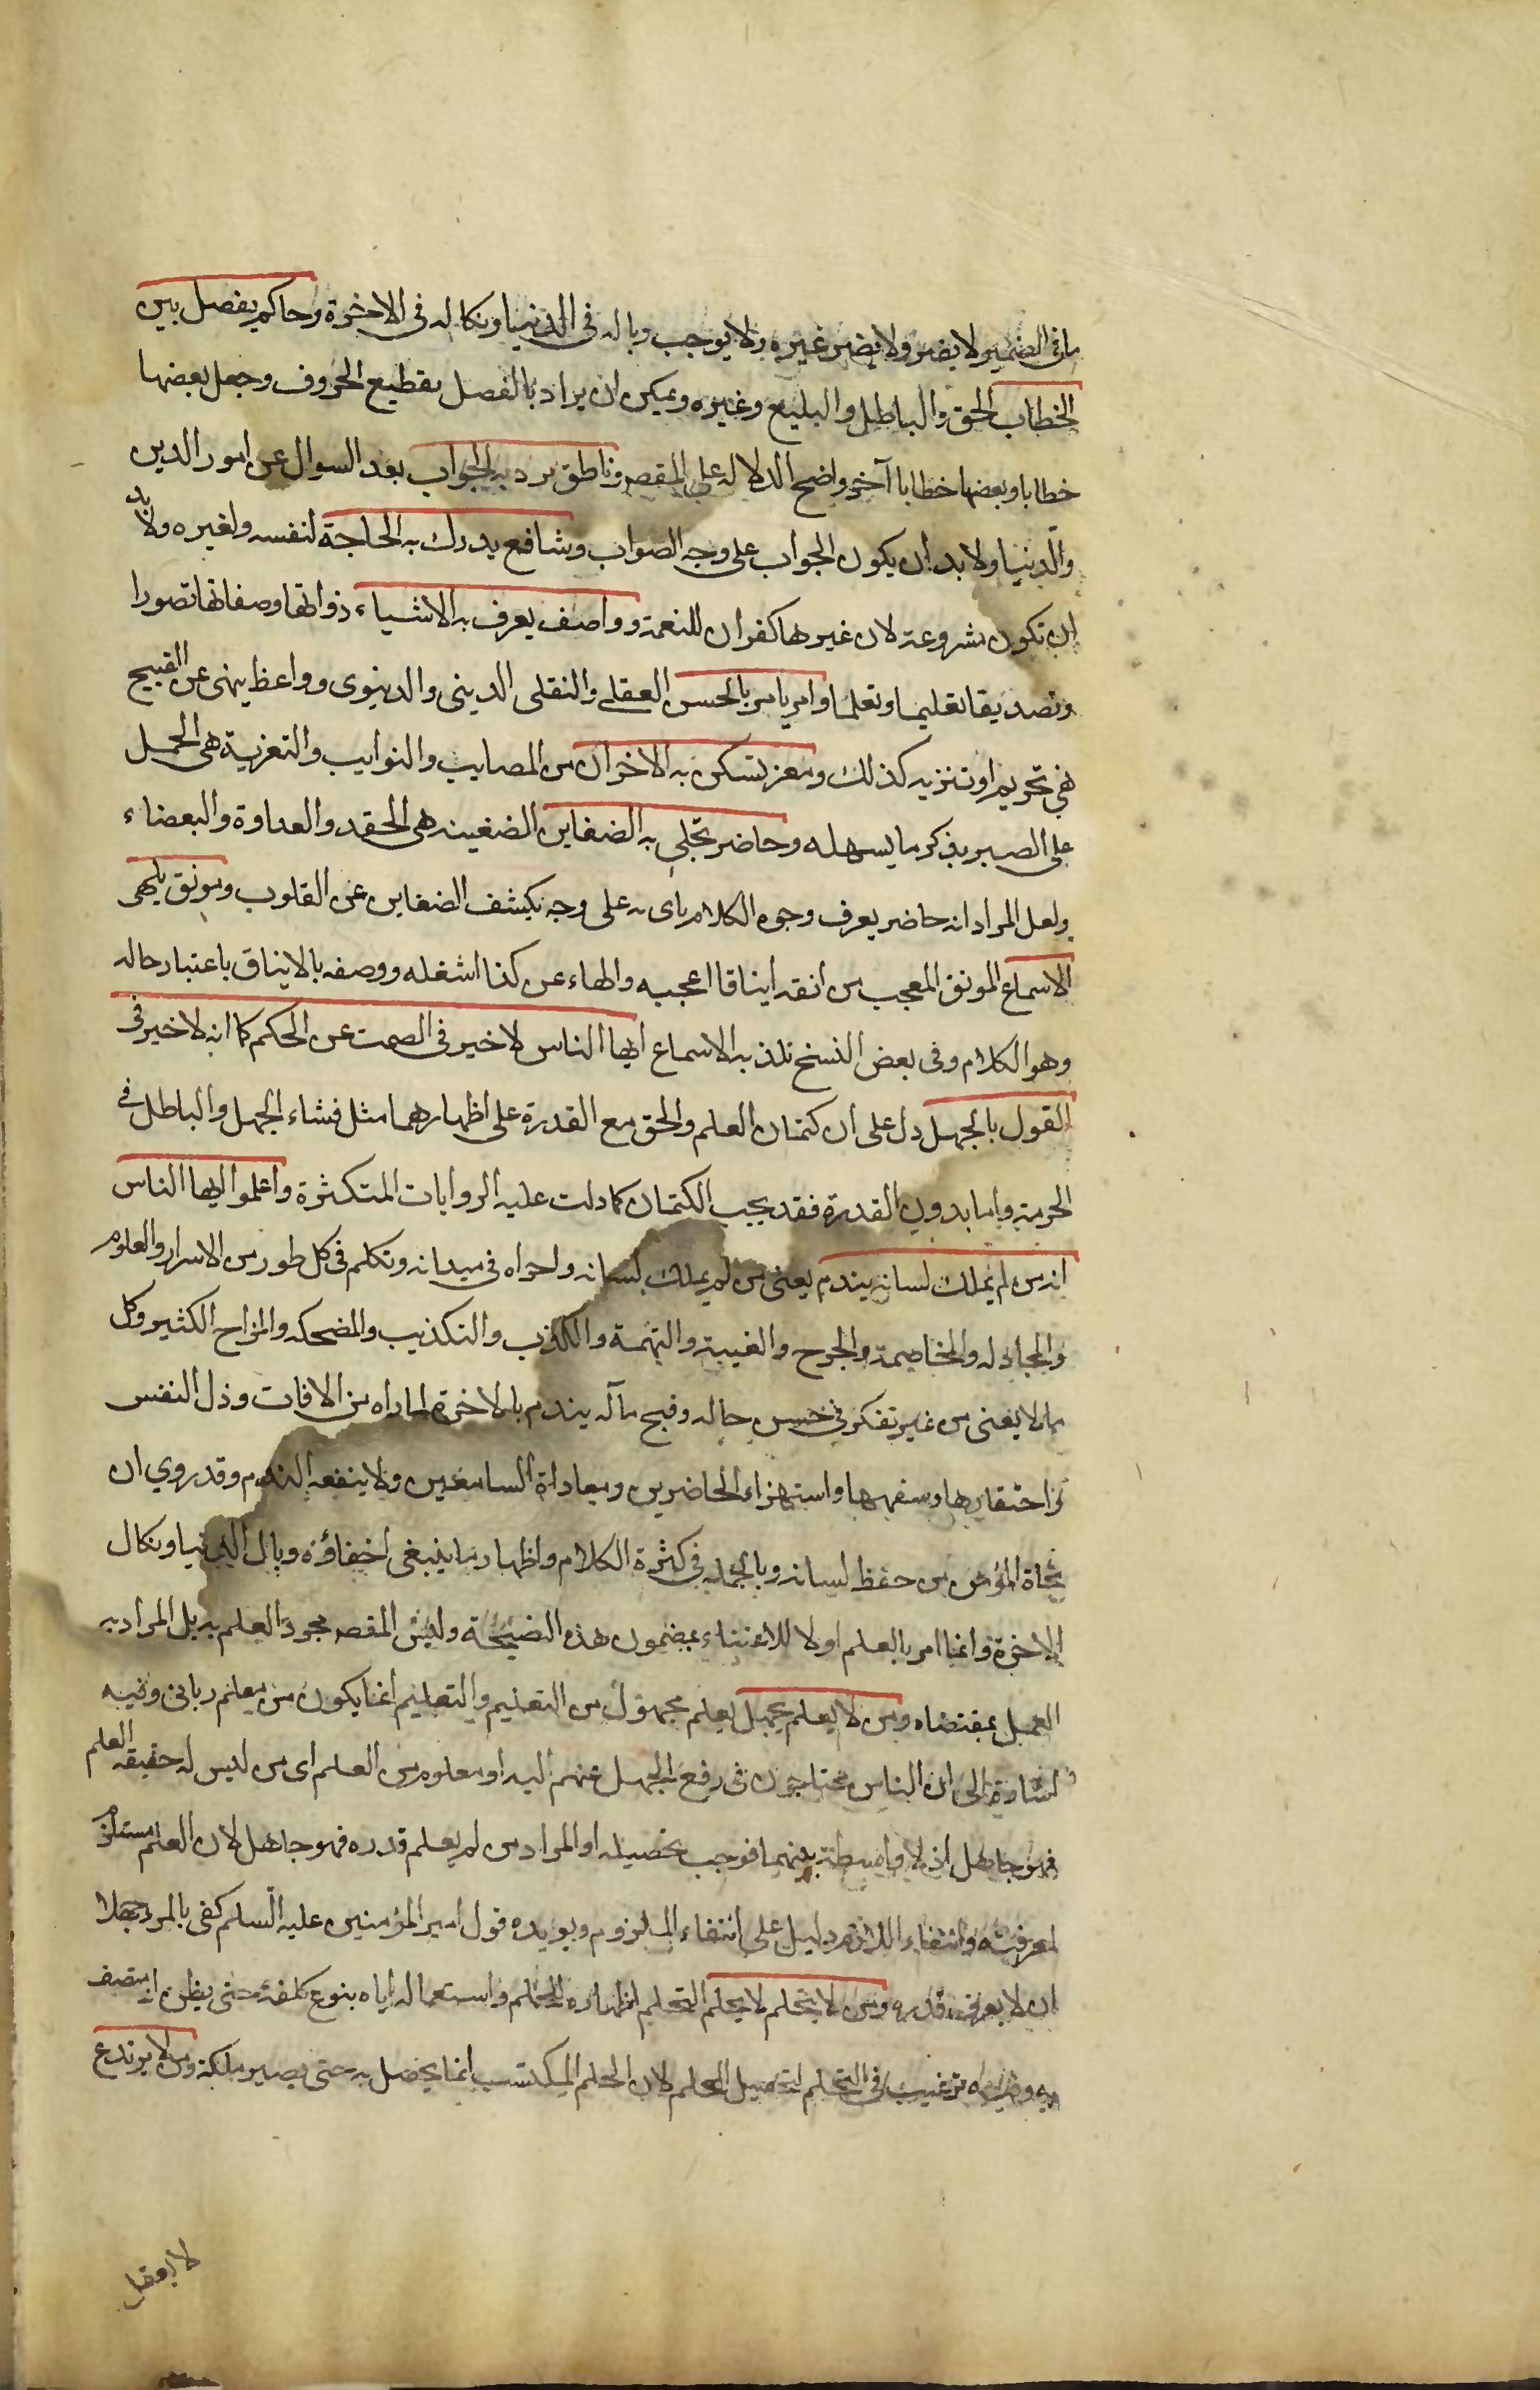 ما فى الضمير ولا يضر ولا يضر غيره ولا يوجب وباله فى الدنيا ونكاله فى الاخرة وحاكم يفصل بين
الخطاب الحق والباطل والبليغ وغيره ويمكن ان يراد بالفصل تقطيع الحروف وجعل بعضها
خطابا وبعضها خطابا آخر واضح الدلاله على المقصم وناطق يرد به الجواب بعد السوال عن امور الدين
والدنيا ولا بد ان يكون الجواب على وجه الصواب وشافع يدرك به الحاجة لنفسه ولغيره ولا بد
ان تكون مشروعة لان غيرها كفران للنعمة وواصف يعرف به الاشياء ذواتها وصفاتها تصورا
وتصديقا تعليما وتعلما وامر يامر بالحسن العقلى والنقلى الدينى والدنيوى وواعظ ينهى عن القبيح
نهى تحريم او تنزيه كذلك ومعز تسكن به الاخوان من المصايب والنوايب والتعزية هى الحمل
على الصبر بذكر ما يسهله وحاضر تجلى به الضغاين الضغينه هى الحقد والعداوة والبغضاء
ولعل المراد انه حاضر يعرف وجوه الكلام ياى به على وجه يكشف الضغاين عن القلوب ومونق يلهى
الاسماع المونق المعجب من انقه ايناقا اعجبه والهاء عن كذا اشغله ووصفه بالايناق باعتبار حاله
وهو الكلام وفى بعض النسخ تلذ به الاسماع ايها الناس لا خير فى الصمت عن الحكم كما انه لا خير فى
القول بالجهل دل على ان كتمان العلم والحق مع القدرة على اظهارهما مثل فشاء الجهل والباطل فى
الحرمة واما بدون القدرة فقد يجب الكتمان كما دلت عليه الروايات المتكثرة واعلموا ايها الناس
انه من لم يملك لسانه يندم يعنى من لم يملك لسانه واجراه فى ميدانه وتكلم فى كل طور من الاسرار والعلوم
والمجادله والمخاصمة والجرح والغيبة والتهمة والكذب والتكذيب والمضحكه والمزاح الكثير وكل
ما لا يعنى من غير تفكر فى حسن حاله وقبح مآله يندم بالاخرة لما راه من الافات وذل النفس
واحتقارها وسفهها واستهزاء الحاضرين ومعاداة السامعين ولا ينفعه الندم وقد روي ان
نجاة المؤمن من حفظ لسانه وبالجمله فى كثرة الكلام واظهار ما ينبغى اخفاؤه وبال الدنيا ونكال
الاخرة وانما امر بالعلم اولا للاعتناء بمضمون هذه النصيحة وليس المقصم مجرد العلم به بل المراد به
العمل بمقتضاه ومن لا يعلم يجهل يعلم مجهول من التعليم والتعليم انما يكون من معلم ربانى وفيه
اشارة الى ان الناس محتاجون فى رفع الجهل عنهم اليه او معلوم من العلم اى من ليس له حقيقه العلم
فهو جاهل اذ لا واسطة بينهما فوجب تحصيله او المراد من لم يعلم قدره فهو جاهل لان العلم مستلزم
لمعرفته وانتفاء اللازم دليل على انتفاء الملزوم ويويده قول امير المؤمنين عليه السلم كفى بالمرء جهلا
ان لا يعرف قدره ومن لا يتحلم لا يحلم التحلم اظهاره للحلم واستعماله اياه بنوع كلفة حتى يظن انه متصف
به وفيه ترغيب فى التحلم لتحصيل الحلم لان الحلم المكتسب انما يحصل به حتى يصير ملكة ومن لا يرتدع
لا يعقل